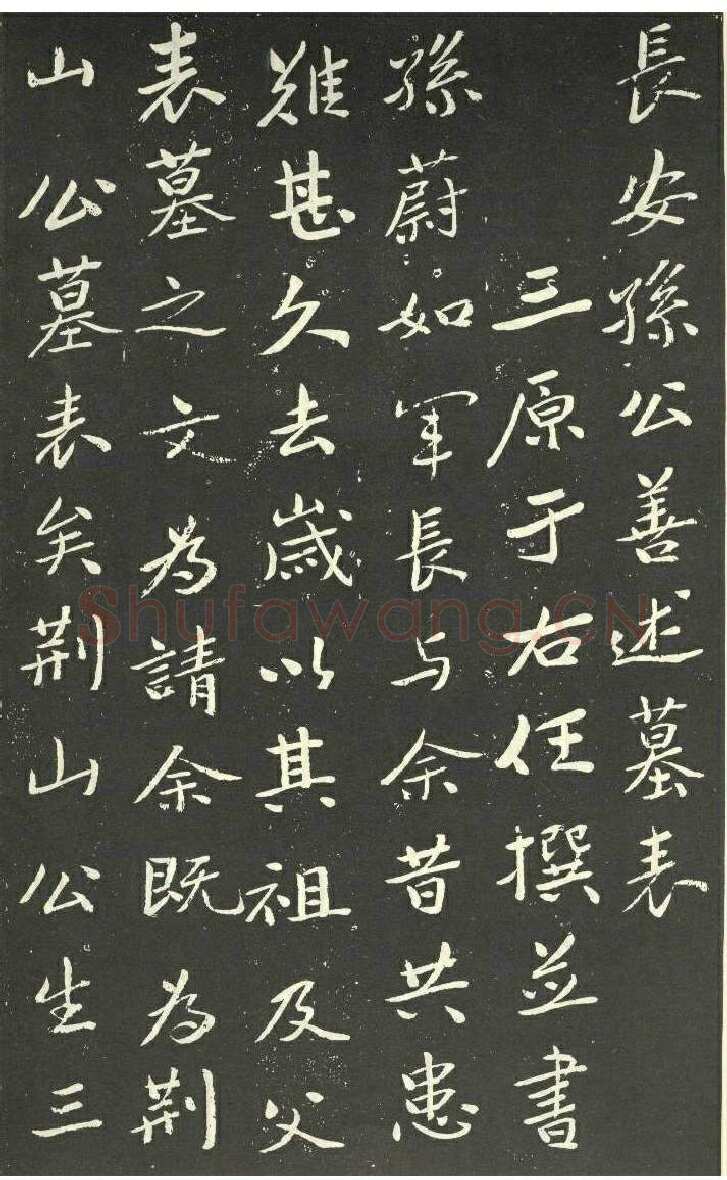 長安孫公善述墓表
三原于右任撰並書
孫蔚如軍長与余昔共患
難甚久去歲以其祖及父
表墓之文為請余既為荆
山公墓表矣荆山公生三
Shufawang.CN